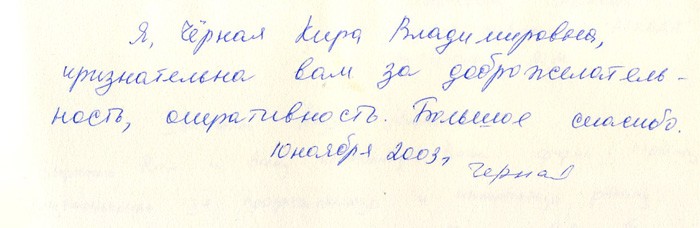 Я, Чёрная Кира Владимировна,
признательна вам за доброжелатель-
ность, оперативность. Большое спасибо.
10 ноября 2003г Черная